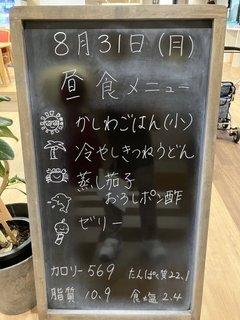 8月31日(月)
昼食メニュー
かしわごはん(小)
冷やしきつねうどん
蒸し茄子
おろしポン酢
ゼリー
カロリー569 たんぱく質22.1
脂質 10.9 食塩 2.4